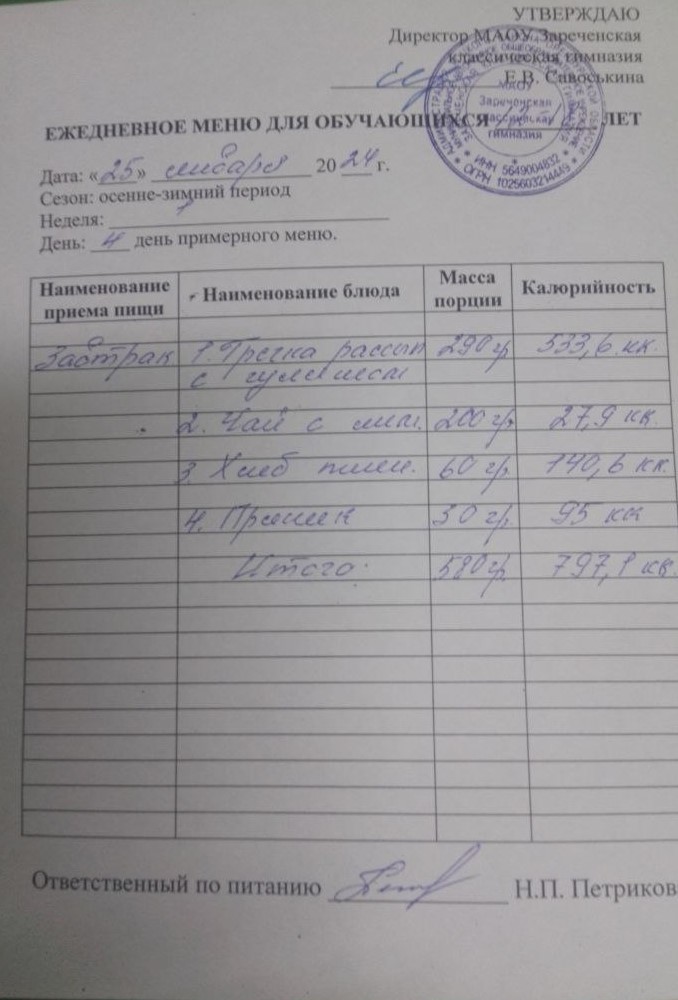 УТВЕРЖДАЮ
Директор МАОУ Зареченская
классическая гимназия
Е.В. Савоськина
МАОУ
Зареченская
классическая
гимназия
ИНН 5649004832
ОГРН 1025603214449
ЕЖЕДНЕВНОЕ МЕНЮ ДЛЯ ОБУЧАЮЩИХСЯ ЛЕТ
Дата: «25» января 20 24 г.
Сезон: осенне-зимний период
Неделя:
День: 4 день примерного меню.
Наименование приема пищи Наименование блюда Масса порции Калорийность
Завтрак 1. Гречка рассып 290 гр 533,6 кк.
с гуляшом
2. Чай с лим. 200 гр. 27,9 кк.
3. Хлеб пшен. 60 гр. 140,6 кк.
4. Пряник 30 гр. 95 кк
Итого: 580 гр. 797,1 кк.
Ответственный по питанию Н.П. Петриков